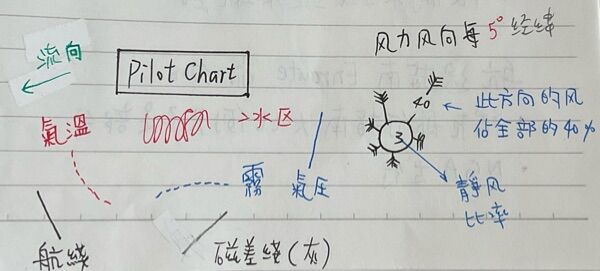 流向
Pilot Chart
风力风向每5°经纬
氣溫
冰区
40
此方向的风
佔全部的40%
3
霧
氣圧
靜风
比率
航線
磁差線(灰)